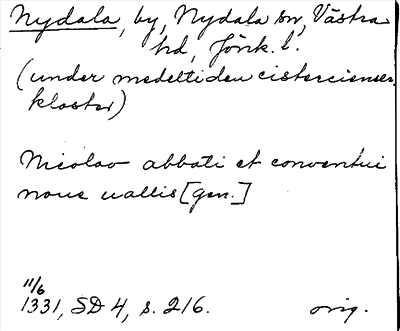 Nydala, by, Nydala sn, Västra
hd, Jönk. l.
(under medeltiden cistercienser-
kloster)
Nicolao abbati et conventui
noue uallis [gen.]
11/6
1331, SD 4, s. 216. orig.